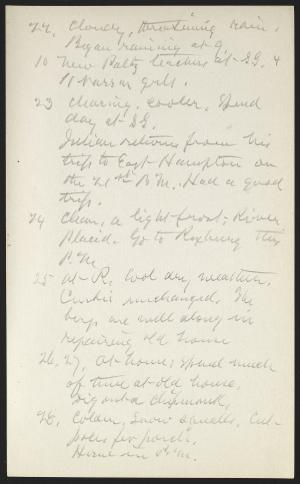 22, Cloudy, threatening rain.
Began raining at 9.
10 New Paltz teachers at S.S. &
11 Vassar girls.
23 Clearing, cooler. Spend
day at S.S.
Julian returns from his
trip to East Hampton on
the 21st P.M. Had a good
trip.
24 Clear, a light frost; River
placid. Go to Roxbury this
P.M.
25 at R. Cool dry weather.
Curtis unchanged. The
boys are well along in
repairing old house
26, 27, At home; spend much
of time at old house,
dig out a chipmunk,
28, Colder, snow squalls, Cut
poles for porch.
Home in P.M.